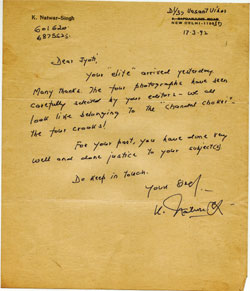 K. Natwar-Singh
D1/37 Vasant Vihar
NEW DELHI-1100
601620
17.3.92
Dear Jyoti,
Your "elite" arrived yesterday.
Many thanks. The four photographs have been
carefully selected by your editors - we all
look like belonging to the "chandal chokri" -
the four crooks!
For your part, you have done very
well and done justice to your subject(s).
Do keep in touch.
Yours
K. Natwar